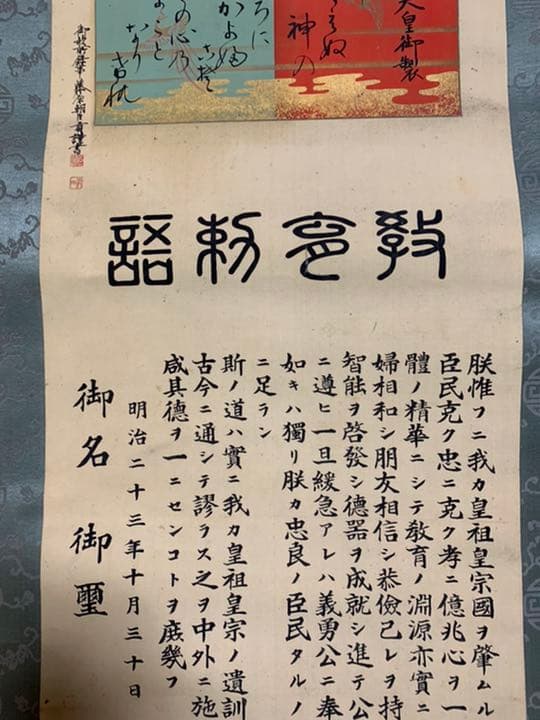 天皇御製
えぬ
神の
ろに
かよふ
こそ
の心乃
まこと
なり
けれ
教育勅語
朕惟フニ我カ皇祖皇宗國ヲ肇ムル
臣民克ク忠ニ克ク孝ニ億兆心ヲ一
體ノ精華ニシテ教育ノ淵源亦實ニ
婦相和シ朋友相信シ恭儉己レヲ持
智能ヲ啓發シ德器ヲ成就シ進テ公
ニ遵ヒ一旦緩急アレハ義勇公ニ奉
如キハ獨リ朕カ忠良ノ臣民タルノ
ニ足ラン
斯ノ道ハ實ニ我カ皇祖皇宗ノ遺訓
古今ニ通シテ謬ラス之ヲ中外ニ施
咸其德ヲ一ニセンコトヲ庶幾フ
明治二十三年十月三十日
御名 御璽